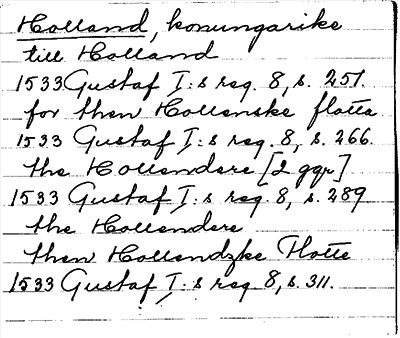 Holland, konungarike
till Holland
1533 Gustaf I:s reg. 8, s. 257.
för then Hollenske flotta
1533 Gustaf I:s reg. 8, s. 266.
the Hollendere [2 ggr]
1533 Gustaf I:s reg. 8, s. 289
the Hollendere
then Hollendzke Flotte
1533 Gustaf I:s reg. 8, s. 311.